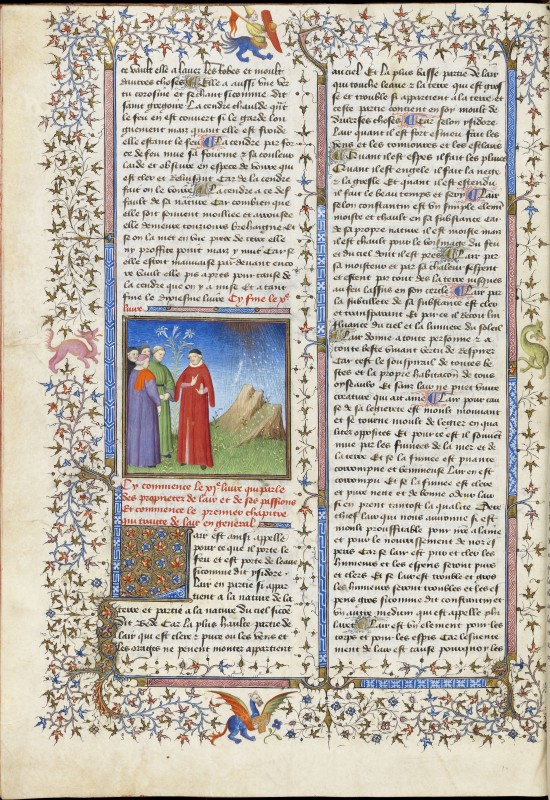 ce vault elle a laver les robes et moult
dautres choses Elle a aussi une ver
tu corosiue et sechant sicomme dit
saint gregoire La cendre chaulde quist
le feu en est couuert si le garde lon
guement mais quant elle est froide
elle estaint le feu La cendre par for
ce de feu mue sa fourme z sa couleur
laide et obscure en espece de voirre qui
est cler et reluisant Car de la cendre
fait on le voirre La cendre a ce def
fault de sa nature Car combien que
elle soit souuent moilliee et arrousee
elle demeure tousiours brehaingne Et
se on la met en une piece de terre elle
ny prouffite point mais y nuit Car se
elle estoit mauuaise par deuant enco
re vault elle pis apres pour cause de
la cendre que on y a mise Et a tant
fine le dixiesme liure Cy fine le xe
liure
Cy commence le xie liure qui parle
des proprietez de lair et de ses passions
Et commence le premier chapitre
qui traicte de lair en general
air est ainsi appelle
pour ce que il porte le
feu et est porte de leaue
sicomme dit ysidore
Lair en partie si appar
tient a la nature de la
terre et partie a la nature du ciel sicōe
dit Bede Car la plus haulte partie de
lair qui est clere z pure ou les vens et
les orages ne peuent monter appartient
au ciel Et la plus basse partie de lair
qui touche leaue z la terre qui est gros
se et trouble si appartient a la terre et
ceste partie contient en soy moult de
diuerses choses Car selon ysidore
Lair quant il est fort esmeu fait les
vens et les tonnoirres et les esclairs
Quant il est espes il fait les pluies
Quant il est engele il fait la neige
z la gresle Et quant il est estendu
il fait le beau temps et sery Lair
selon constantin est vn simple eleme
moiste et chault en sa substance Car
de sa propre nature il est moiste mais
il est chault pour le voisinage du feu
et du ciel dont il est pres Lair par
sa moisteur et par sa chaleur sespent
et estent par tout des la terre iusques
au feu lassus en son cercle Lair par
la subtillete de sa substance est cler
et transparant Et par ce il recoit lin
fluance du ciel et la lumiere du soleil
Lair donne a toute personne z a
toute beste viuant vertu de respirer
Car cest le souspirail de toutes be
stes et la propre habitacion de tous
oyseaulx Et sans lair ne puet viure
creature qui ait ame Lair pour cau
se de sa legierete est moult mouuant
et se tourne moult de legier en qua
litez opposites Et pour ce est il souuent
mue par les fumees de la mer et de
la terre Et se la fumee est puante
corrompue et venimeuse Lair en est
corrompu Et se la fumee est clere
et pure nette et de bonne odeur lair
si en prent tantost la qualite
chief lair qui nous auironne si est
moult prouffitable pour nre alaine
et pour le nourrissement de noz es
peris Car se lair est pur et cler les
humeurs et les esperis seront purs
et clers Et se lair est trouble et gros
les humeurs seront troubles et les es
peris gros sicomme dit constantin et
vn autre medecin qui est appelle phi
laire Lair est vn element pour les
corps et pour les esperis Car lesuente
ment de lair est cause pourquoy les